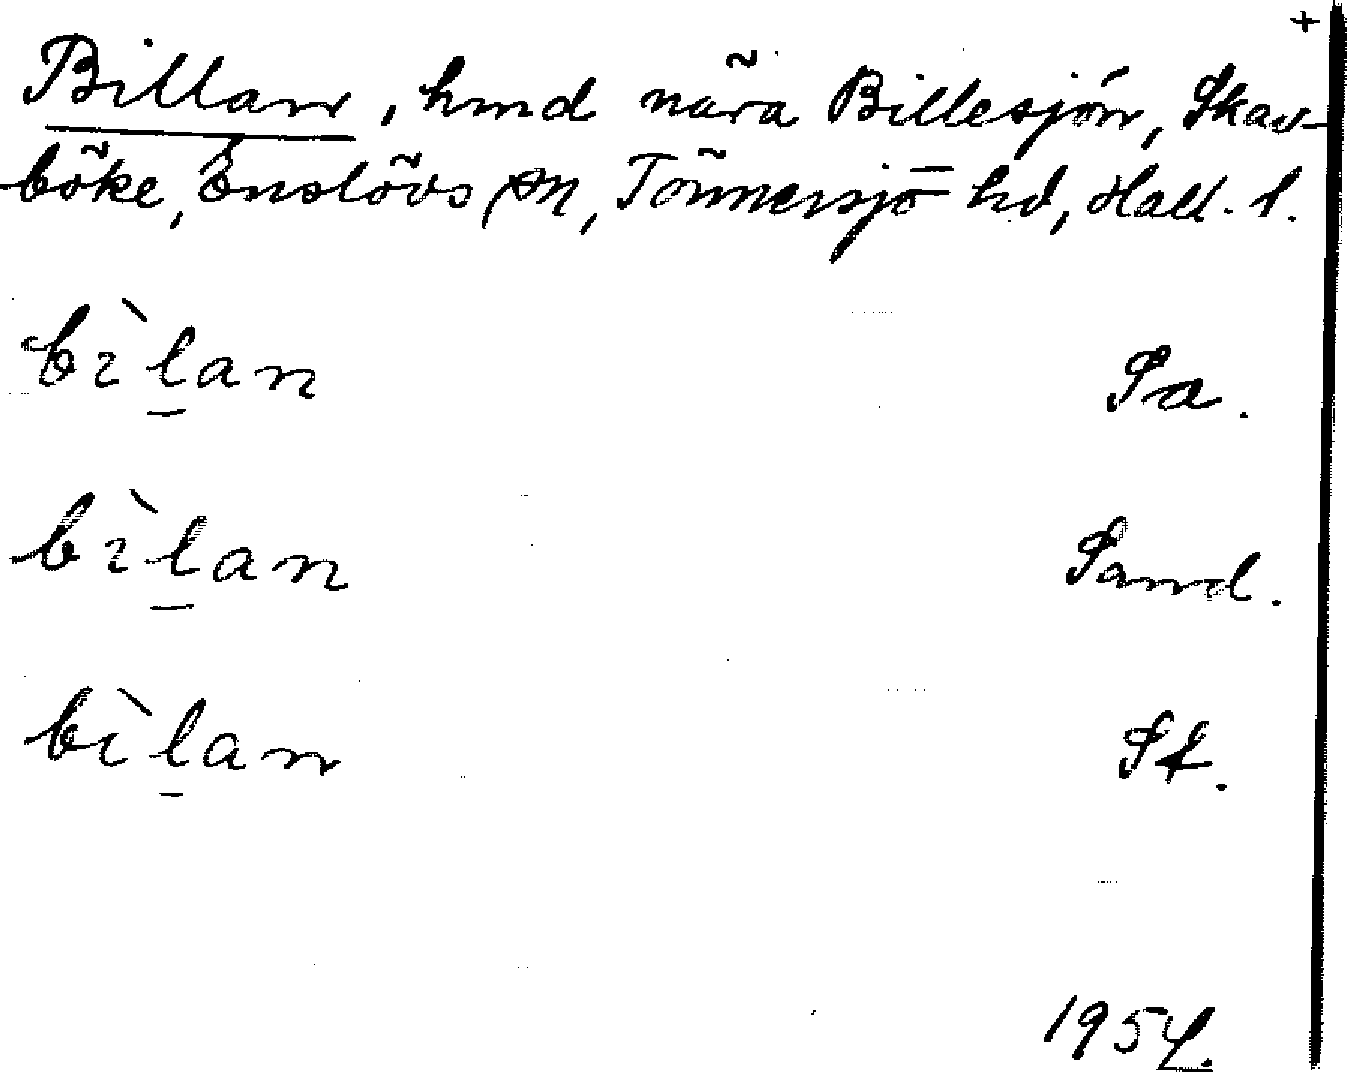 +
Billan, hmd nära Billesjön, Skav-
böke, Enslövs sn, Tönnersjö hd, Hall. l.
bìlan Sa.
bìlan Sand.
bìlan St.
1954.